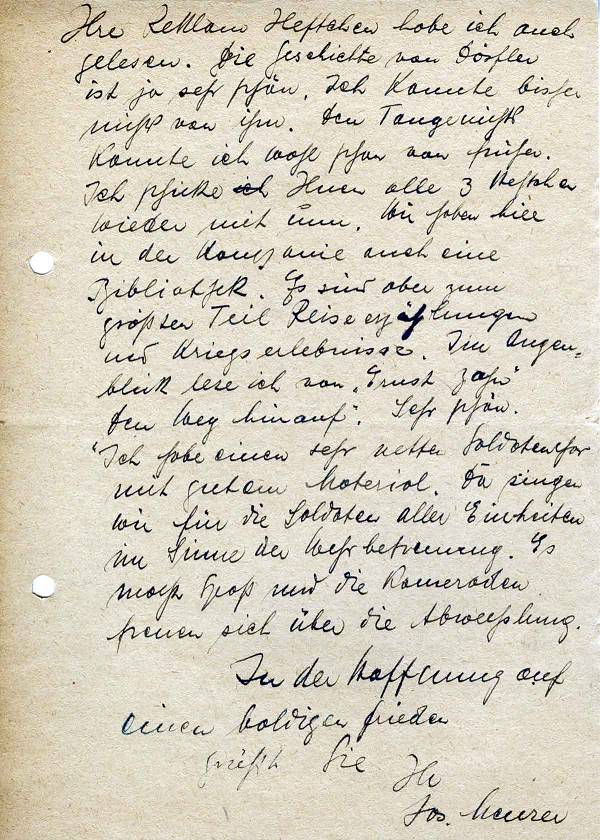 Ihre Reklam Heftchen habe ich auch
gelesen. Die Geschichte von Dörfler
ist ja sehr schön. Ich kannte bisher
nichts von ihm. Den Taugenichts
kannte ich wohl schon von früher.
Ich schicke ich Ihnen alle 3 Heftchen
wieder mit um. Wir haben hier
in der Kompanie auch eine
Bibliothek. Es sind aber zum
größten Teil Reiseerzählungen
und Kriegserlebnisse. Im Augen-
blick lese ich von „Ernst Zahn"
Den Weg hinauf". Sehr schön.
Ich habe einen sehr netten Soldatenchor
mit gutem Material. Da singen
wir für die Soldaten aller Einheiten
im Sinne der Wehrbetreuung. Es
macht Spaß und die Kameraden
freuen sich über die Abwechslung.
In der Hoffnung auf
einen baldigen Frieden
grüßt Sie
Ihr
Jos. Meurer